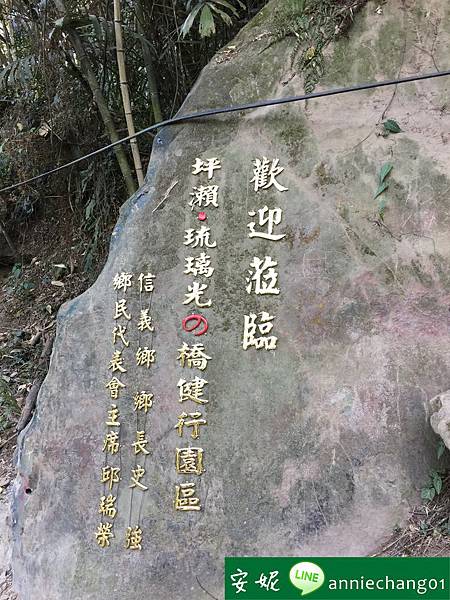 歡迎蒞臨
坪瀨·琉璃光の橋健行園區
信義鄉鄉長史 強
鄉民代表會主席邱瑞榮
安妮 LINE anniechang01